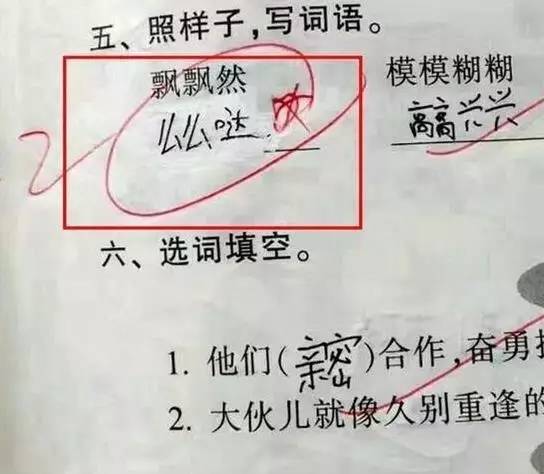 五、照样子,写词语。
飘飘然 模模糊糊
么么哒 高高兴兴
六、选词填空。
1. 他们(亲密)合作,奋勇
2. 大伙儿就像久别重逢的